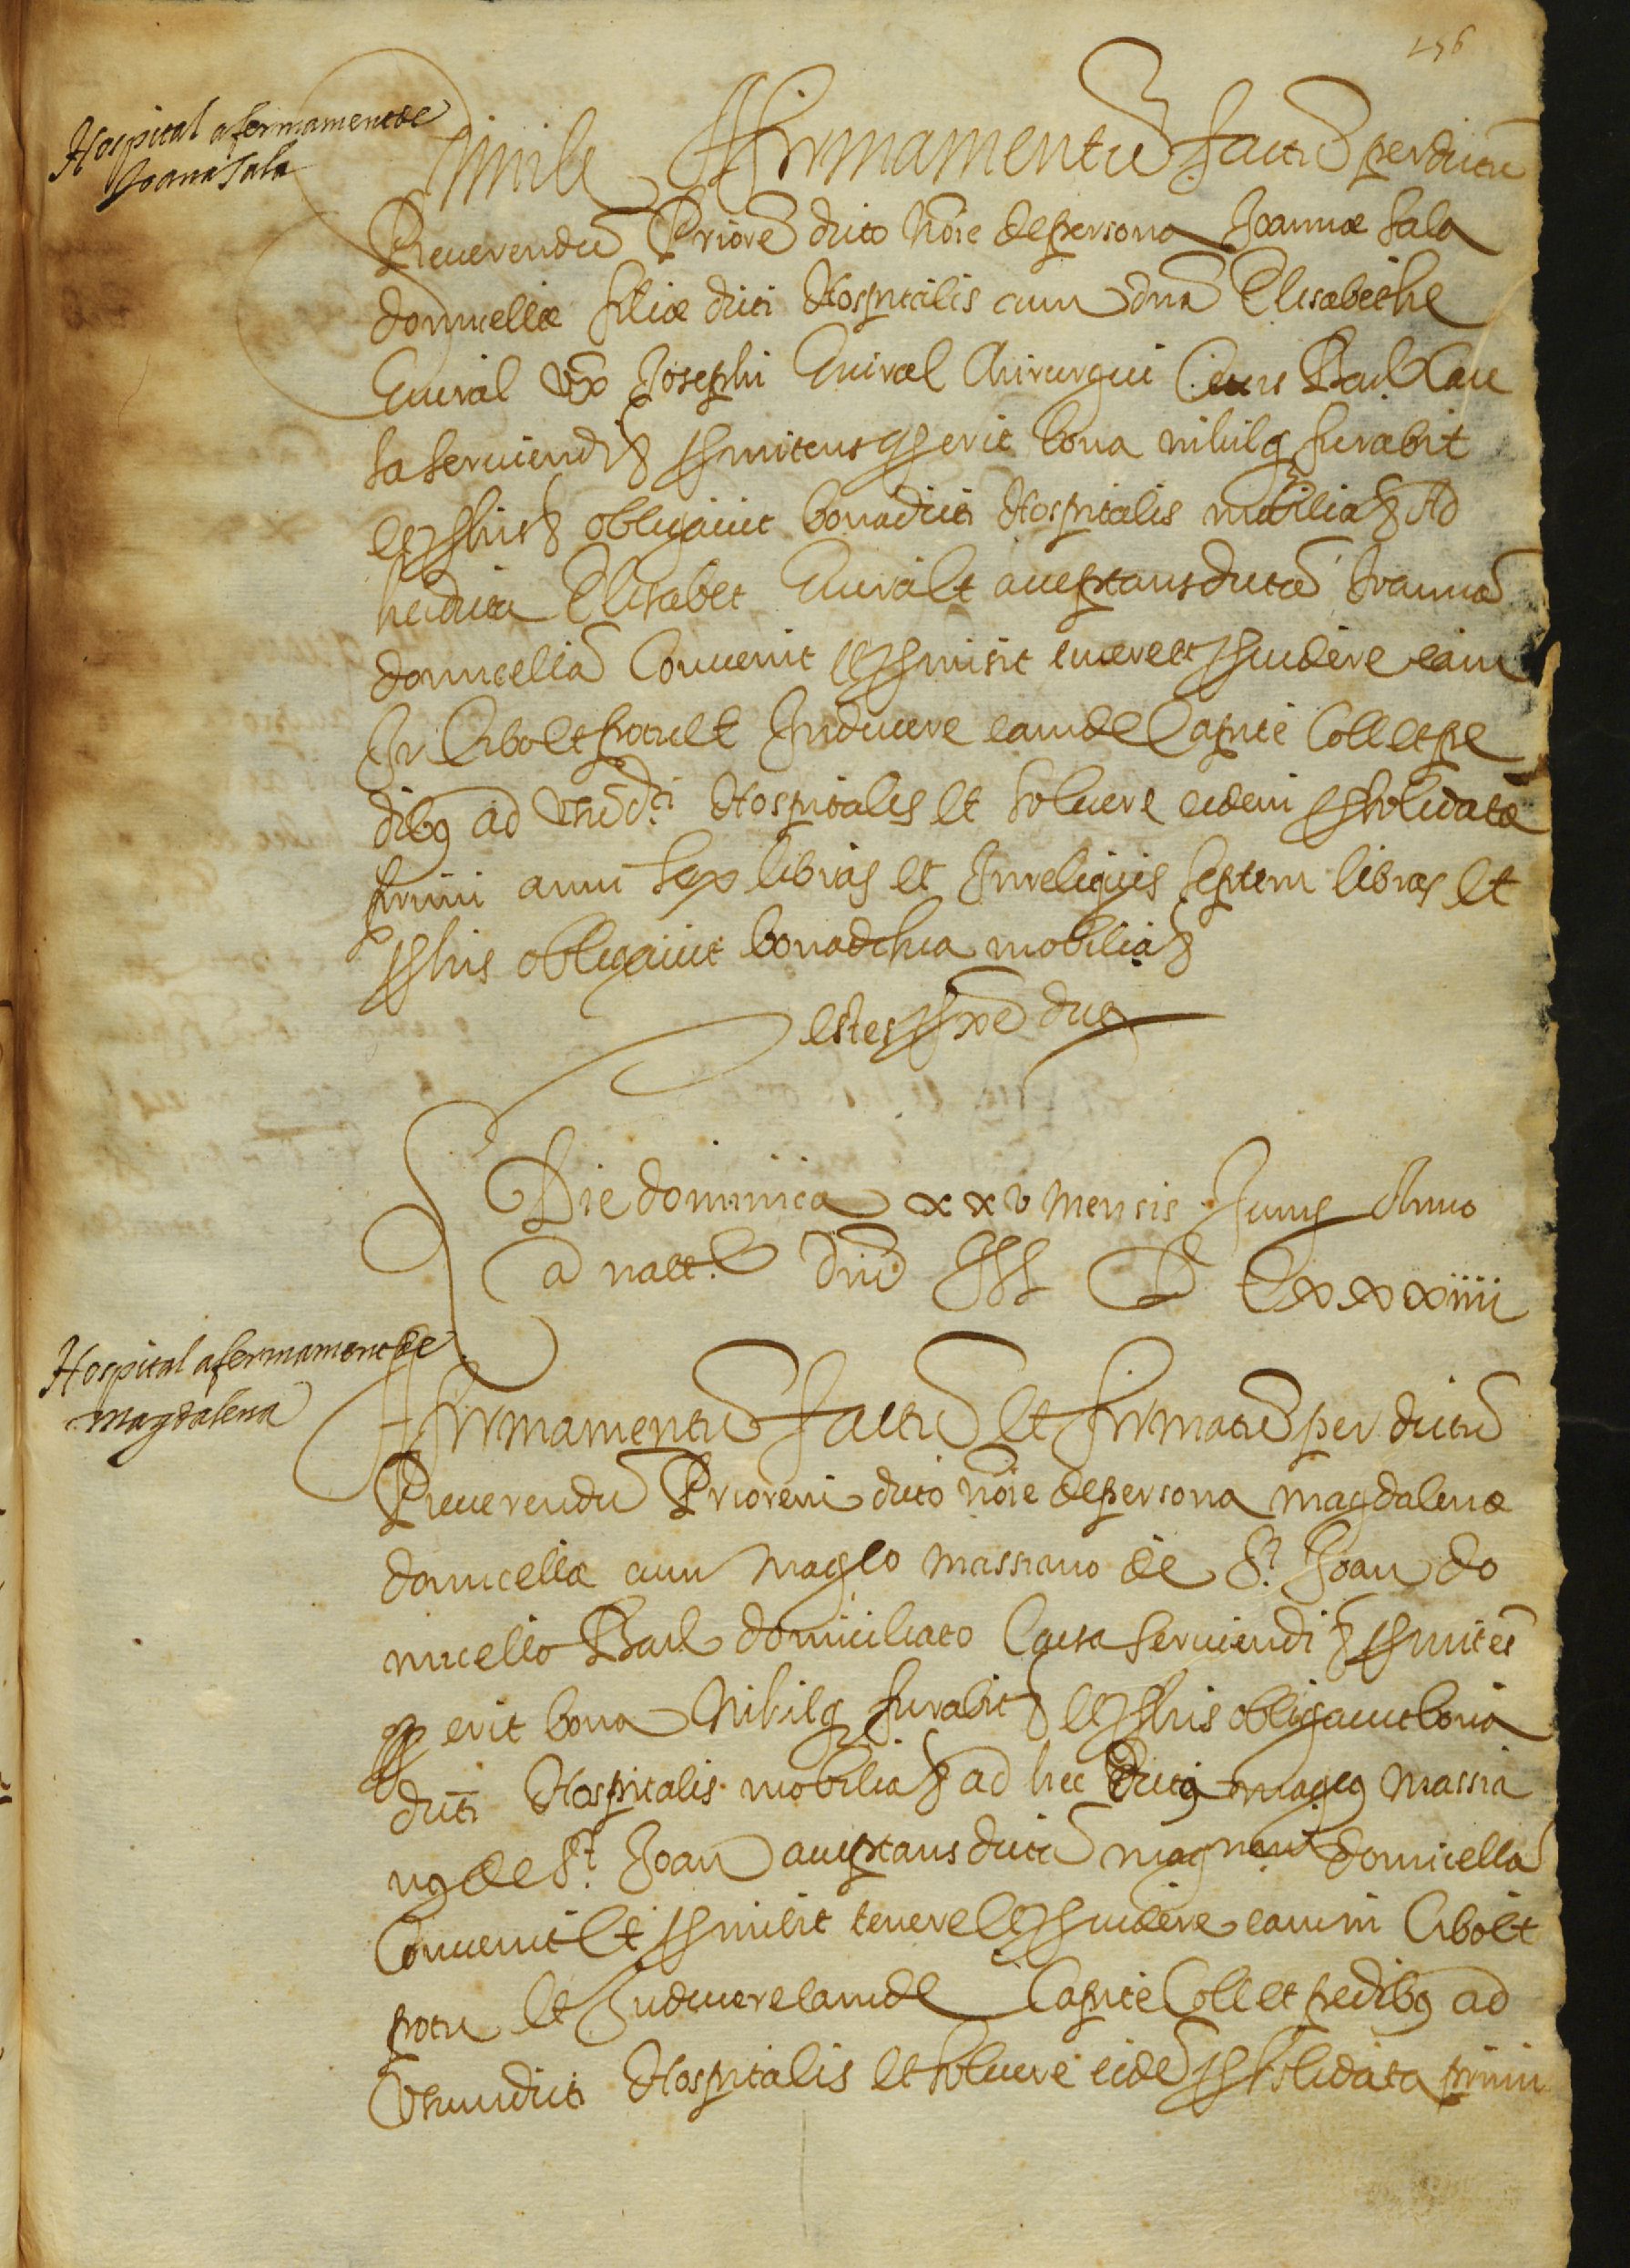 156
Hospital afermament de
Joana Sala
Simile Affirmamentũ factũ per dictũ
Reuerendũ Priorẽ dicto nõie de persona Joannæ Sala
domicellæ filiæ dicti Hospitalis cum dña Elisabethe
Guiral vx̃ Josephi Guiral Chirurgui Ciuis Barl Cau
sa seruiendi & promitens q erit bona nihilq furabit
et pro his & obligauit bona dicti Hospitalis mobilia & Ad
hec dicta Elisabet Guiralt acceptans dictã Joannã
domicellã Conuenit et promisit tenere et prouidere eam
In Cibo et potu et Induere eamde Capite Coll et pe
dibq ad vsũ dti Hospitalis et soluere eidem pro solidata
primi anni sex libras et In reliquis septem libras et
pro his obligauit bona dicta mobilia &
Testes proxe dicti
Die dominica xxv mensis Junij Anno
a natt.e Dñi M D Lxxxxiiii
Hospital afermament de
magdalena
Affirmamentũ factũ et firmatũ per dictũ
Reuerendũ Priorem dicto nõie de persona magdalenæ
domicellæ cum mag.co massiano de St. Joan do
micello Barl domiciliato Causa seruiendi & promitẽs
q erit bona Nihilq furabit & et pro his obligauit bona
dicti Hospitalis mobilia & ad hec dictq magcq massia
nq de St. Joan acceptans dictã mag domicellã
Conuenit et promisit tenere et prouidere eam in Cibo et
potu et Induere eamde Capite Coll et pedibq ad
vsum dicti Hospitalis et soluere eidẽ pro solidata primi